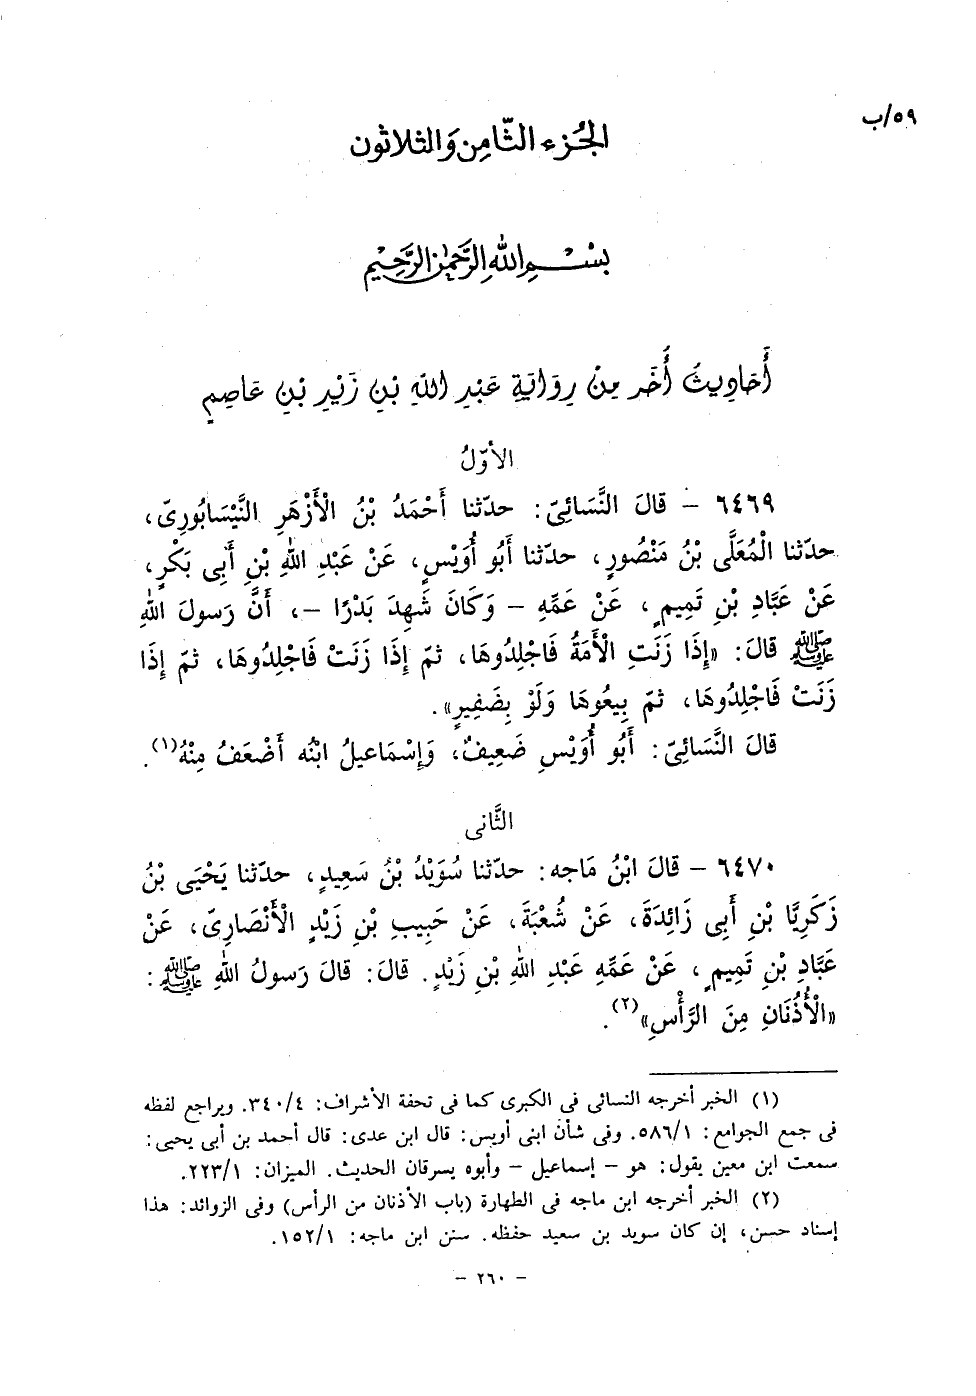 ٥٩/ب
الجُزء الثَّامِن وَالثلاثون
بِسْــمِ اللهِ الرَّحْمٰنِ الرَّحِيْمِ
أَحَادِيثُ أُخَر مِنْ رِوَايَةِ عَبْدِ اللهِ بْنِ زَيْدِ بْنِ عَاصِمٍ
الأوّلُ
٦٤٦٩ – قالَ النَّسَائِىّ: حدّثنا أَحْمَدُ بْنُ الْأَزْهَرِ النَّيْسَابُورِىّ،
حدّثنا الْمُعَلَّى بْنُ مَنْصُورٍ، حدّثنا أَبُو أُوَيْسٍ، عَنْ عَبْدِ اللهِ بْنِ أَبِى بَكْرٍ،
عَنْ عَبَّادِ بْنِ تَمِيمٍ، عَنْ عَمِّهِ – وَكَانَ شَهِدَ بَدْرًا –، أَنَّ رَسولَ اللهِ
ﷺ قالَ: «إِذَا زَنَتِ الْأَمَةُ فَاجْلِدُوهَا، ثمّ إِذَا زَنَتْ فَاجْلِدُوهَا، ثمّ إِذَا
زَنَتْ فَاجْلِدُوهَا، ثمّ بِيعُوهَا وَلَوْ بِضَفِيرٍ».
قالَ النَّسَائِىّ: أَبُو أُوَيْسٍ ضَعِيفٌ، وَإِسْمَاعِيلُ ابْنُه أَضْعَفُ مِنْهُ(١).
الثَّانى
٦٤٧٠ – قالَ ابْنُ مَاجه: حدّثنا سُوَيْدُ بْنُ سَعِيدٍ، حدّثنا يَحْيَى بْنُ
زَكَرِيَّا بْنِ أَبِى زَائِدَةَ، عَنْ شُعْبَةَ، عَنْ حَبِيبِ بْنِ زَيْدٍ الْأَنْصَارِىّ، عَنْ
عَبَّادِ بْنِ تَمِيمٍ، عَنْ عَمِّهِ عَبْدِ اللهِ بْنِ زَيْدٍ. قالَ: قالَ رَسولُ اللهِ ﷺ:
«الْأُذُنَانِ مِنَ الرَّأْسِ»(٢).
(١) الخبر أخرجه النسائى فى الكبرى كما فى تحفة الأشراف: ٣٤٠/٤. ويراجع لفظه
فى جمع الجوامع: ٥٨٦/١. وفى شأن ابنى أويس: قال ابن عدى: قال أحمد بن أبى يحيى:
سمعت ابن معين يقول: هو – إسماعيل – وأبوه يسرقان الحديث. الميزان: ٢٢٣/١.
(٢) الخبر أخرجه ابن ماجه فى الطهارة (باب الأذنان من الرأس) وفى الزوائد: هذا
إسناد حسن، إن كان سويد بن سعيد حفظه. سنن ابن ماجه: ١٥٢/١.
– ٢٦٠ –